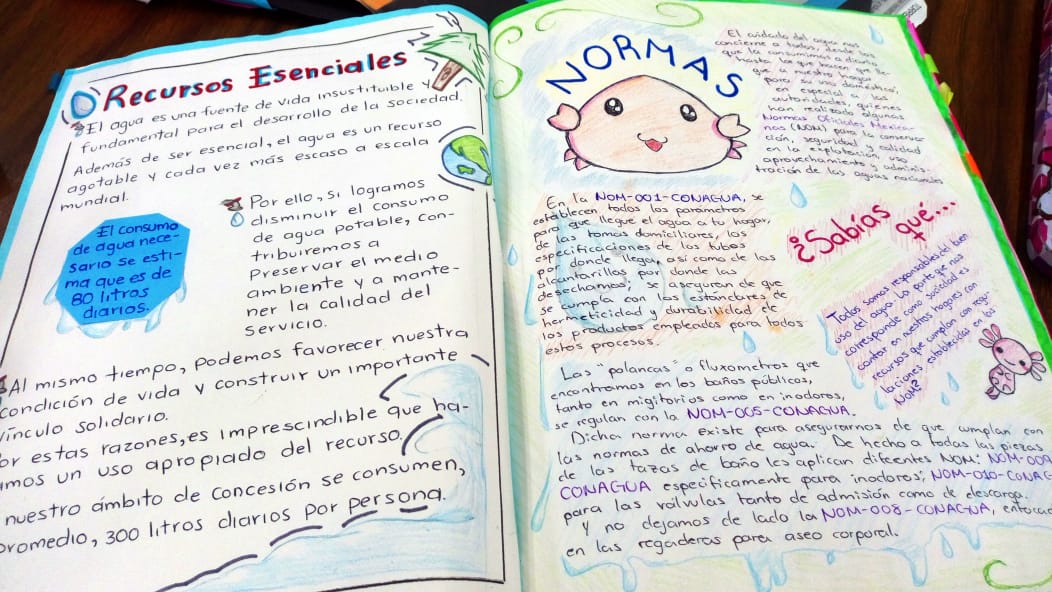 Recursos Esenciales
El agua es una fuente de vida insustituible y
fundamental para el desarrollo de la sociedad.
Además de ser esencial, el agua es un recurso
agotable y cada vez más escaso a escala
mundial.
El consumo
de agua nece-
sario se esti-
ma que es de
80 litros
diarios.
Por ello, si logramos
disminuir el consumo
de agua potable, con-
tribuiremos a
Preservar el medio
ambiente y a mante-
ner la calidad del
servicio.
Al mismo tiempo, podemos favorecer nuestra
condición de vida y construir un importante
vínculo solidario.
or estas razones, es imprescindible que ha-
amos un uso apropiado del recurso.
nuestro ámbito de concesión se consumen,
promedio, 300 litros diarios por persona.
NORMAS
El cuidado del agua nos
concierne a todos, desde los
que la consumimos a diario
hasta los que hacen que lle-
gue a nuestro hogar
para su uso doméstico,
en especial a las
autoridades, quienes
han realizado algunas
Normas Oficiales Mexica-
nas (NOM) para la conserva-
ción, seguridad y calidad
en la explotación, uso
aprovechamiento y adminis-
tración de las aguas nacionales
En la NOM-001-CONAGUA, se
establecen todos los parámetros
para que llegue el agua a tu hogar,
de las tomas domiciliares, las
especificaciones de los tubos
por donde llega, así como de las
alcantarillas por donde las
desechamos; se aseguran de que
se cumpla con los estándares de
hermeticidad y durabilidad de
los productos empleados para todos
estos procesos.
¿Sabías
qué...
Todos somos responsables del bien
uso del agua. La parte que nos
corresponde como sociedad es
contar en nuestros hogares con
recursos que cumplan con regu-
laciones establecidas en las
NOM?
Las "palancas" o fluxometros que
encontramos en los baños públicos,
tanto en migitorios como en inodoros,
se regulan con la NOM-005-CONAGUA.
Dicha norma existe para asegurarnos de que cumplan con
las normas de ahorro de agua. De hecho a todas las piezas
de las tazas de baño les aplican difeentes NOM; NOM-009
CONAGUA especificamente para inodoros; NOM-010-CONAG
para las válvulas tanto de admisión como de descarga.
Y no dejamos de lado la NOM-008-CONAGUA, enfocad
en las regaderas para aseo corporal.